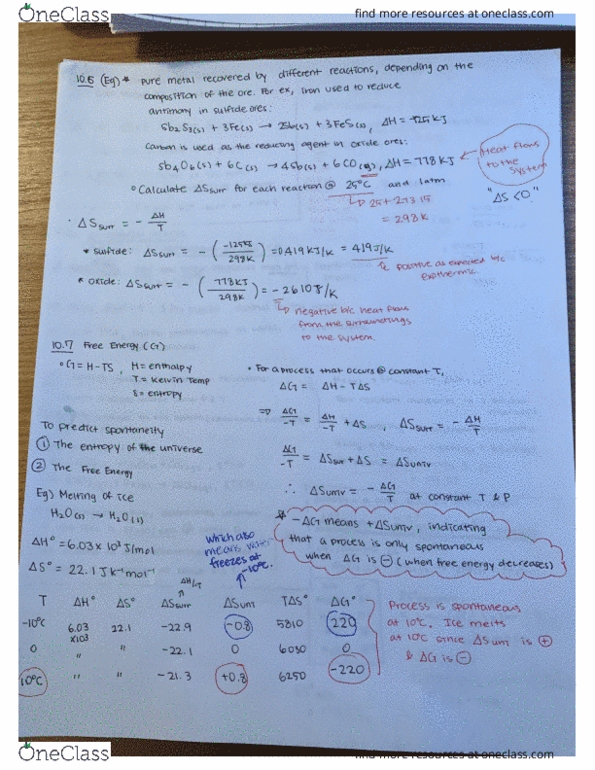 OneClass
find more resources at oneclass.com
10.6 (Eg) * pure metal recovered by different reactions, depending on the
composition of the ore. For ex, iron used to reduce
antimony in sulfide ores:
Sb₂S₃(s) + 3Fe(s) → 2Sb(s) + 3FeS(s), ΔH = -125KJ
Carbon is used as the reducing agent in oxide ores:
Sb₄O₆(s) + 6C(s) → 4Sb(s) + 6CO(g), ΔH = 778KJ
Heat flows
to the
system
"ΔS<0."
° Calculate ΔSsurr for each reaction @ 25°C and 1atm
↳ 25+273.15
= 298K
· ΔSsurr = - ΔH/T
* Sulfide: ΔSsurr = - (-125KJ/298K) = 0.419KJ/K = 419J/K
↳ positive as expected b/c
exothermic
* Oxide: ΔSsurr = - (778KJ/298K) = -2610J/K
↳ negative b/c heat flows
from the surroundings
to the system.
10.7 Free Energy (G)
° G = H-TS, H = enthalpy
T = Kelvin Temp
S = entropy
• For a process that occurs @ constant T,
ΔG = ΔH-TΔS
⇒ ΔG/-T = ΔH/-T + ΔS, ΔSsurr = - ΔH/T
ΔG/-T = ΔSsurr + ΔS = ΔSuniv
∴ ΔSuniv = - ΔG/T at constant T & P
To predict spontaneity
① The entropy of the universe
② The Free Energy
* -ΔG means +ΔSuniv, indicating
that a process is only spontaneous
when ΔG is ⊖ (when free energy decreases)
Eg) Melting of Ice
H₂O(s) → H₂O(l)
ΔH° = 6.03 x 10³ J/mol
ΔS° = 22.1 J K⁻¹mol⁻¹
Which also
means water
freezes at
-10°C.
ΔH/T
T ΔH° ΔS° ΔSsurr ΔSuni TΔS° ΔG°
-10°C 6.03 x10³ 22.1 -22.9 -0.8 5810 220
0 " " -22.1 0 6030 0
10°C " " -21.3 +0.8 6250 -220
Process is spontaneous
at 10°C. Ice melts
at 10°C since ΔSuni is ⊕
& ΔG is ⊖
OneClass
find more resources at oneclass.com